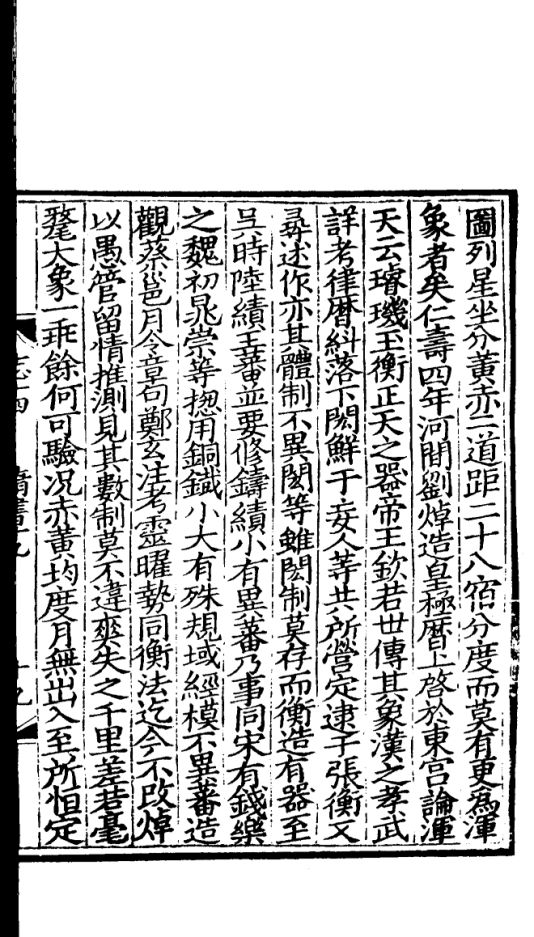 圖列星坐分黃赤二道距二十八宿分度而莫有更爲渾
象者矣仁壽四年河間劉焯造皇極曆上啓於東宮論渾
天云璿璣玉衡正天之器帝王欽若世傳其象漢之孝武
詳考律曆糾落下閎鮮于妄人等共所營定逮于張衡又
尋述作亦其體制不異閎等雖閎制莫存而衡造有器至
吳時陸績王蕃並要修鑄績小有異蕃乃事同宋有錢樂
之魏初晁崇等揔用銅鐵小大有殊規域經模不異蕃造
觀蔡邕月令章句鄭玄注考靈曜勢同衡法迄今不改焯
以愚管留情推測見其數制莫不違爽失之千里差若毫
氂大象一乖餘何可驗况赤黃均度月無出入至所恒定
志十四 隋書十九 十九